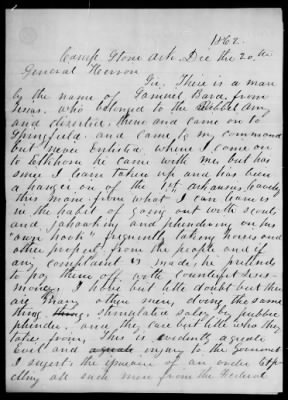 1862.
Camp Stone Ark. Dec the 20.th
General Herron
Sir. There is a man
by the name of Samuel Bard from
Texas. who belonged to the Rebel Army
and deserted them and came on to
Springfield. and came to my command
but never Enlisted. where I come on
to Elkhorn he came with me but has
since I learn taken up and has been
a hanger on of the 1st. arkansas, Cavely
this man from what I can learn is
in the habit of going out with scouts
and Jahawking and plundering on his
"own hook" frequently taking Horses and
other property from the people and if
any complaint is made, he pretends
to pay them off. with Counterfeit
money. I have but little doubt but there
are Many other men, doing the same
thing, stimulated soley by public
plunder. and they care but little who they
take from. This is evidently a great
Evil and injury to the Government
I sugest the issuence of an order Exp-
elling all such men from the Federal